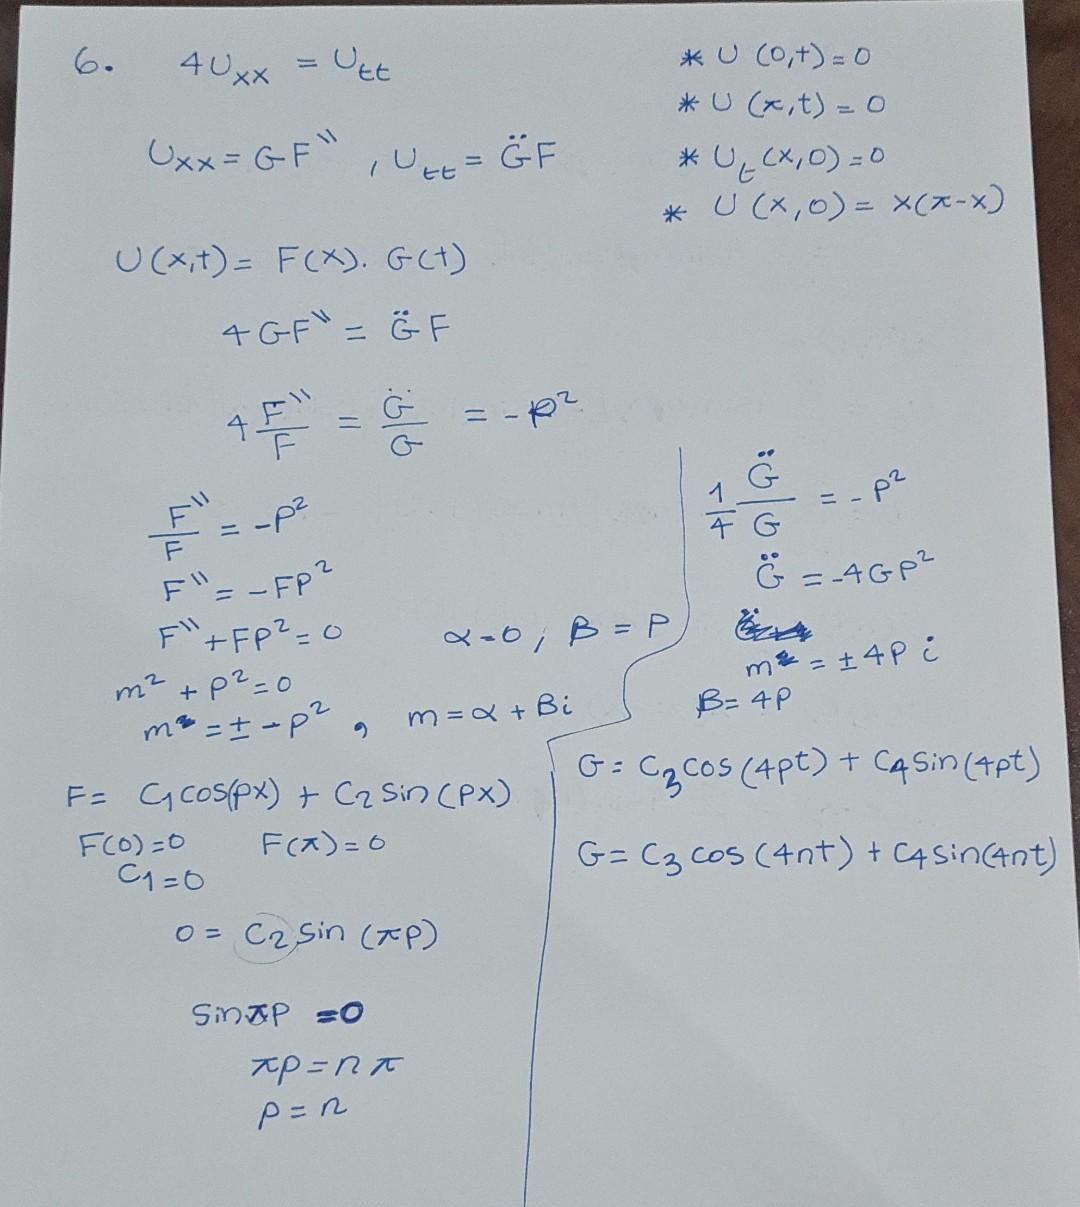 6. 4Uxx = Utt
* U (0,t) = 0
* U (π,t) = 0
* Ut (x,0) = 0
* U (x,0) = x(π-x)
Uxx = GF'' , Utt = G̈F
U(x,t) = F(x). G(t)
4GF'' = G̈F
4 F''/F = G̈/G = -p²
F''/F = -p²
F'' = -Fp²
F'' + Fp² = 0
α=0, B = P
m² + p² = 0
m = ± -p² , m = α + Bi
F = C1 cos(px) + C2 sin(px)
F(0)=0 F(π)=0
C1=0
0 = C2 sin (πp)
sin πp = 0
πp = nπ
p = n
1/4 G̈/G = -p²
G̈ = -4Gp²
m = ±4p i
B = 4p
G = C3 cos (4pt) + C4 sin (4pt)
G = C3 cos (4nt) + C4 sin(4nt)